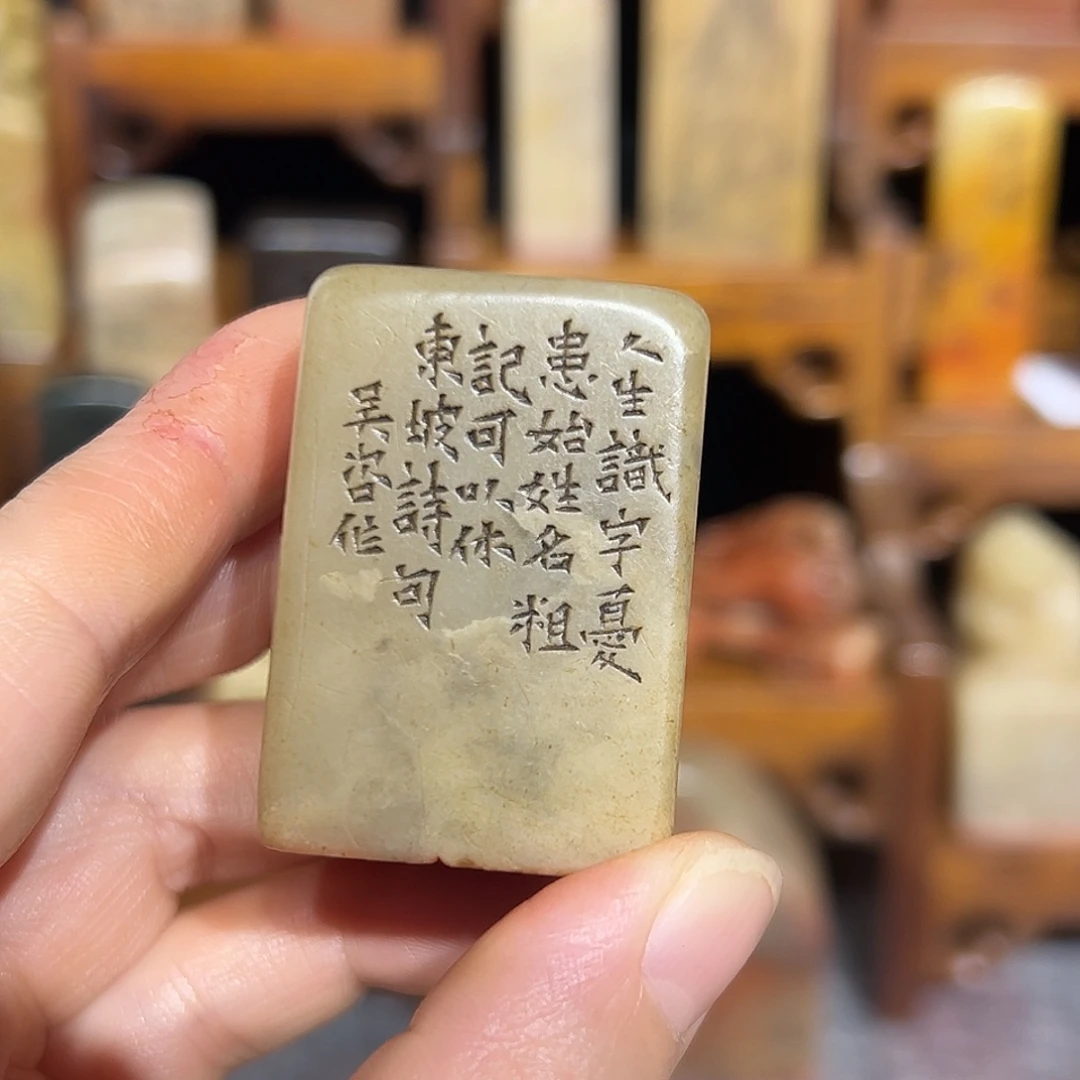 人生識字憂
患始姓名粗
記可以休
東坡詩句
吳咨作